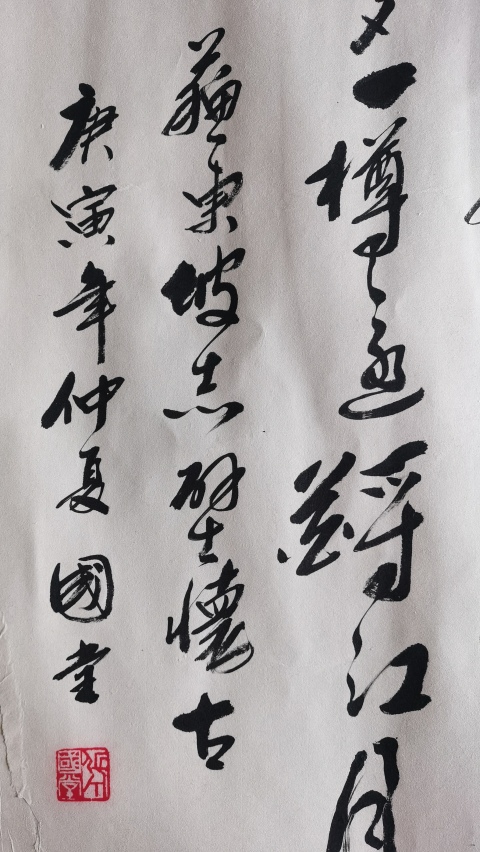 一樽還酹江月
蘇東坡赤壁懷古
庚寅年仲夏 國堂
國堂